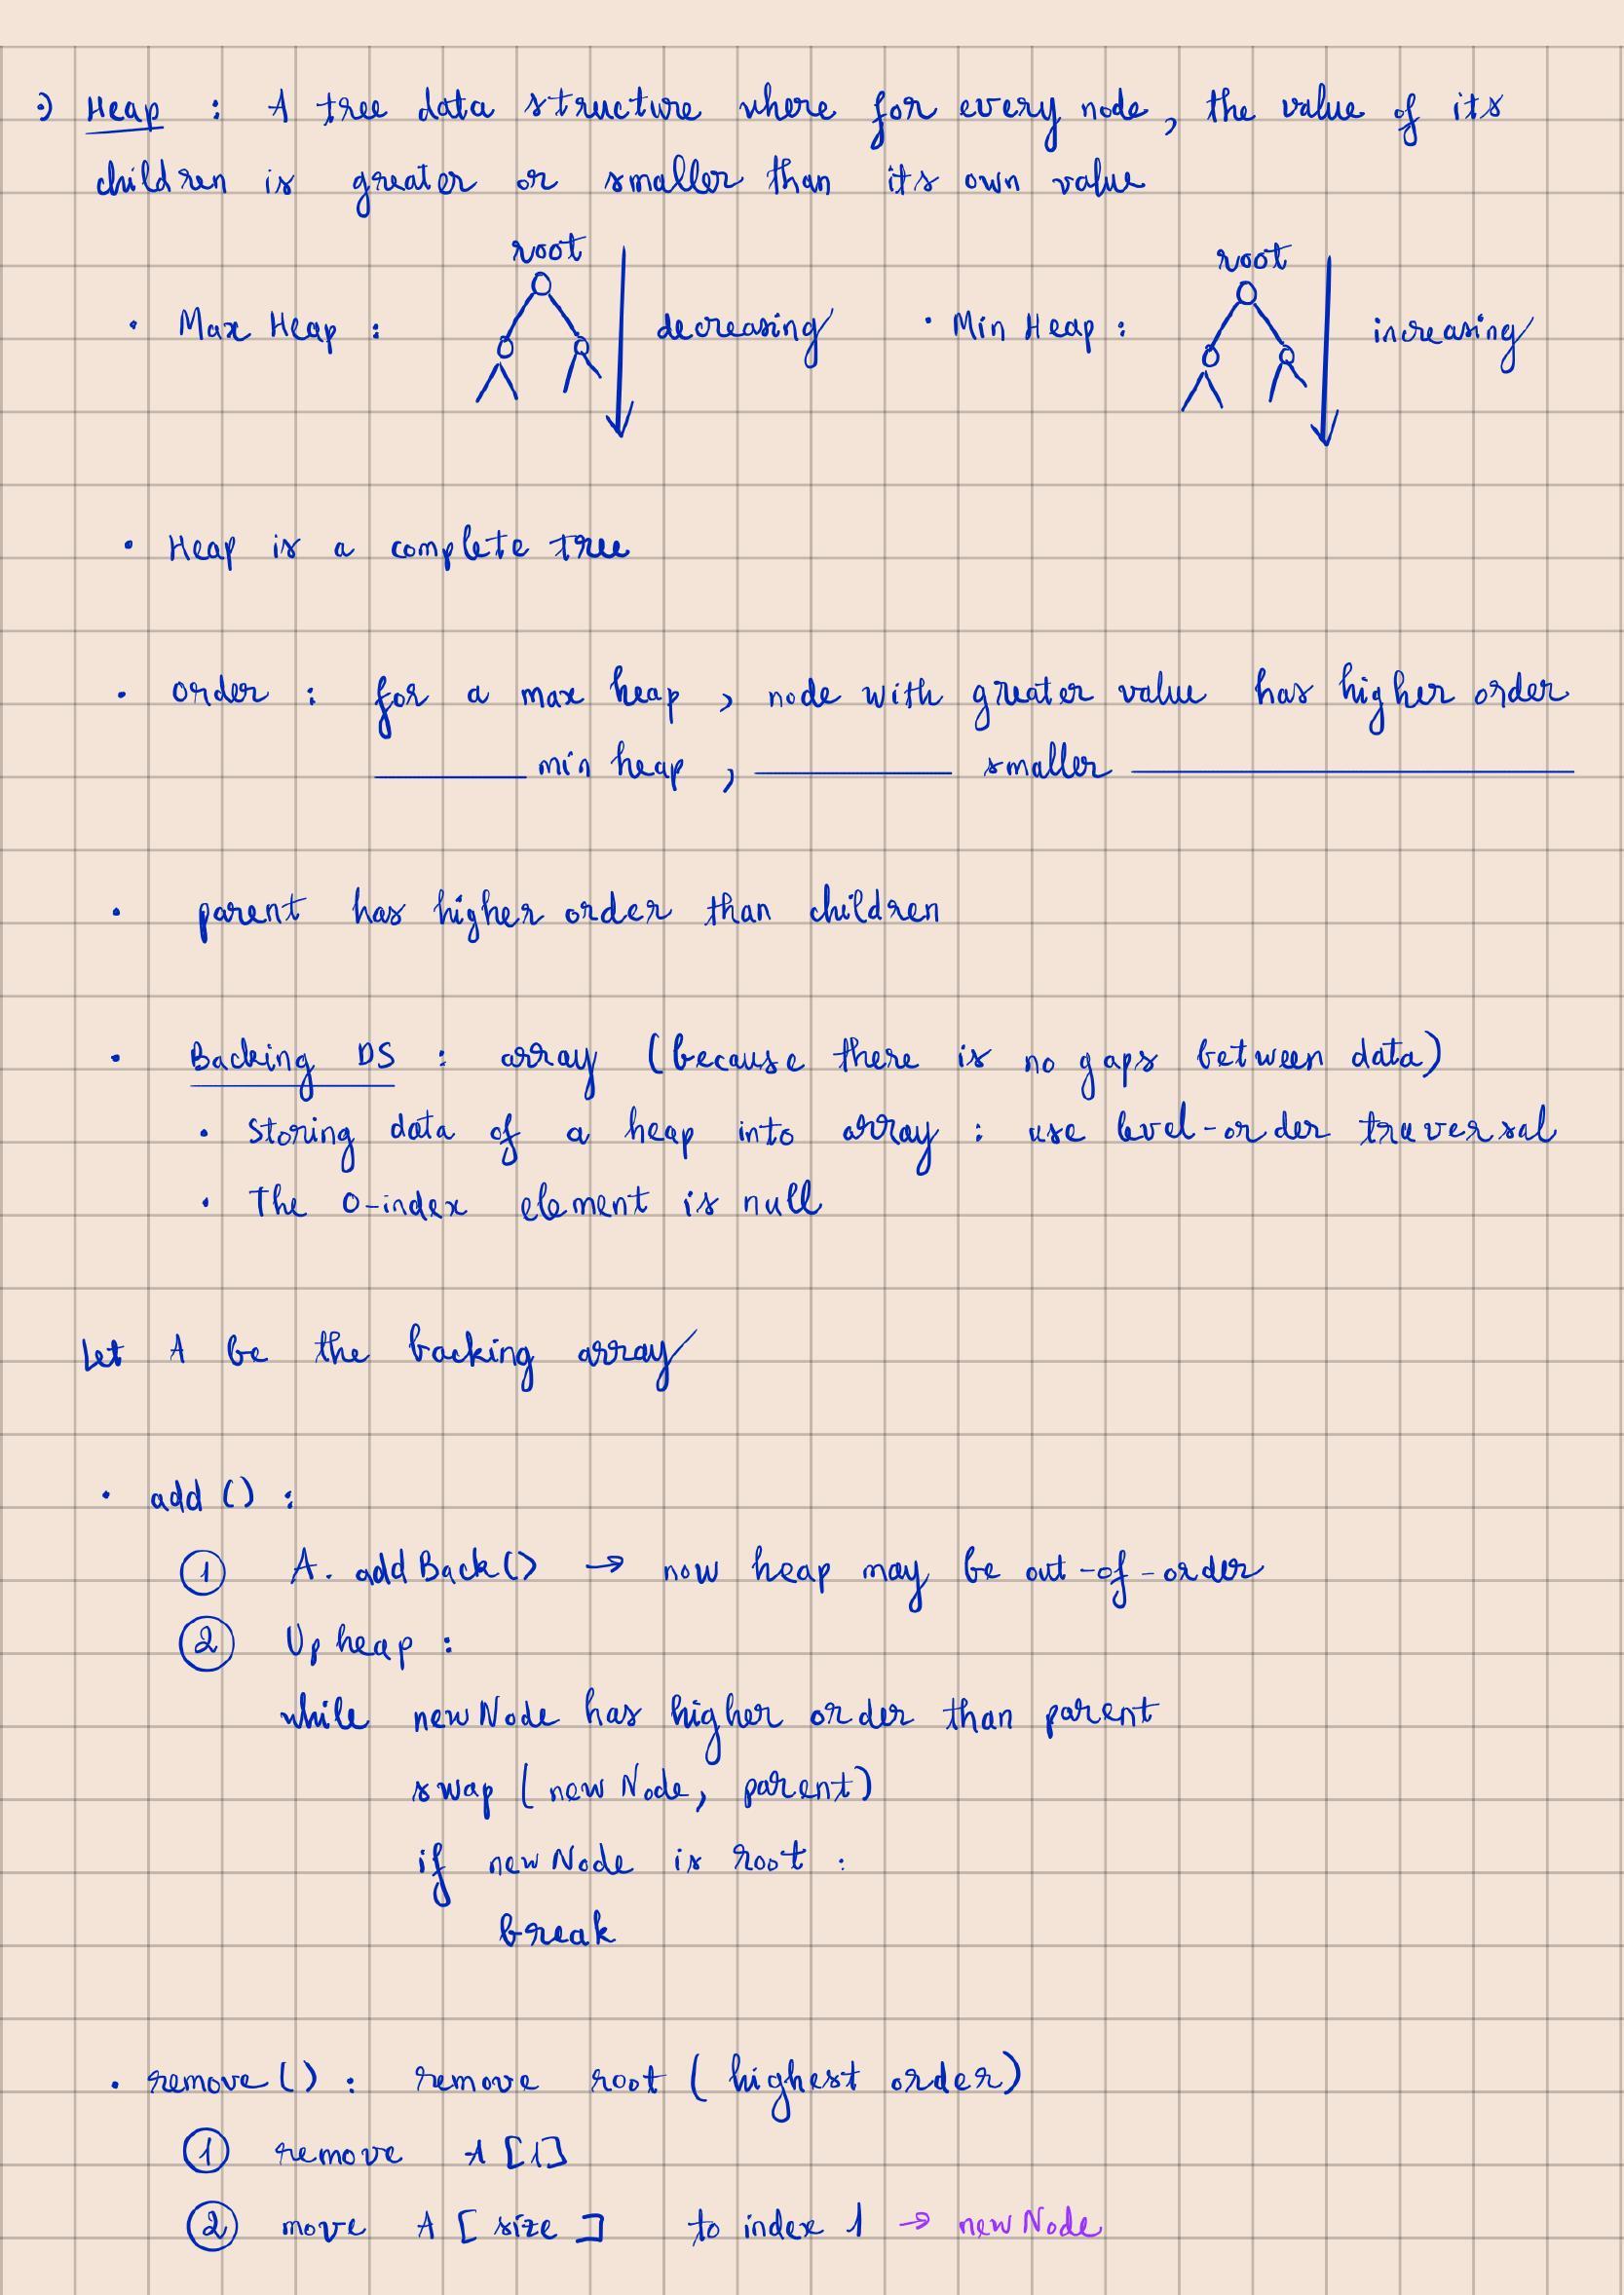 :) Heap : A tree data structure where for every node, the value of its
children is greater or smaller than its own value
root root
• Max Heap : decreasing • Min Heap : increasing
• Heap is a complete tree
• order : for a max heap , node with greater value has higher order
min heap , smaller
• parent has higher order than children
• Backing DS : array (because there is no gaps between data)
• Storing data of a heap into array : use level-order traversal
• The 0-index element is null
Let A be the backing array
• add () :
① A. addBack() → now heap may be out-of-order
② Upheap :
while newNode has higher order than parent
swap (newNode, parent)
if newNode is root :
break
• remove() : remove root ( highest order)
① remove A [1]
② move A [ size ] to index 1 → newNode